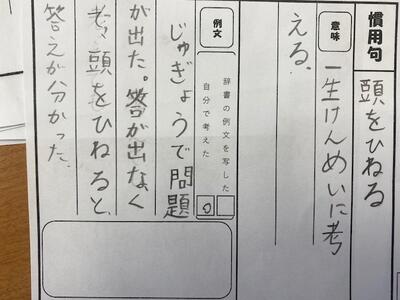 慣用句
頭をひねる
意味
一生けんめいに考
える。
例文
辞書の例文を写した
自分で考えた
じゅぎょうで問題
が出た。答が出なく
頭をひねると、
答えが分かった。